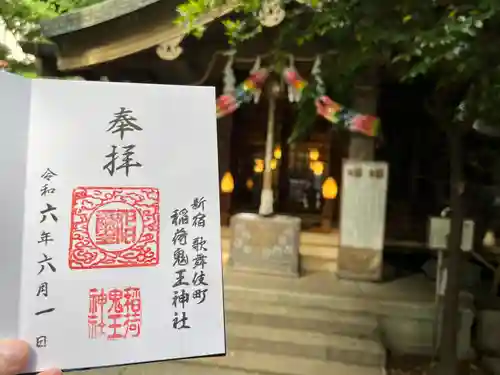 奉拝
新宿歌舞伎町
稲荷鬼王神社
令和六年六月一日
稲荷
鬼王
神社